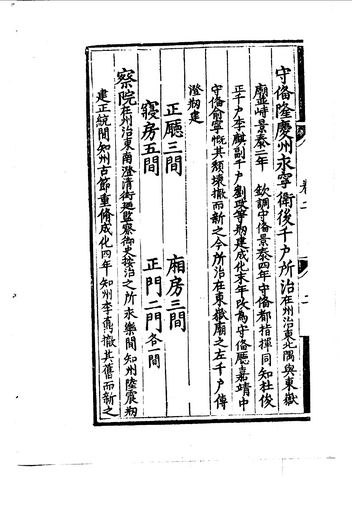 守俻隆慶州永寧衛後千户所治在州治東北隅與東嶽
廟並峙景泰二年　欽調守俻景泰四年守俻都指揮同知杜俊
正千户李麒副千户劉政等剏建成化末年改為守俻廳嘉靖中
守俻俞寧慨其頹壊撤而新之今所治在東嶽廟之左千户傅
澄剏建
正廳三間　廂房三間
寢房五間　正門二門各一間
察院在州治東南澄清街廵監察御史按治之所永樂間知州陸震剏
建正統間知州古節重脩成化四年知州李鼐撤其舊而新之
卷二